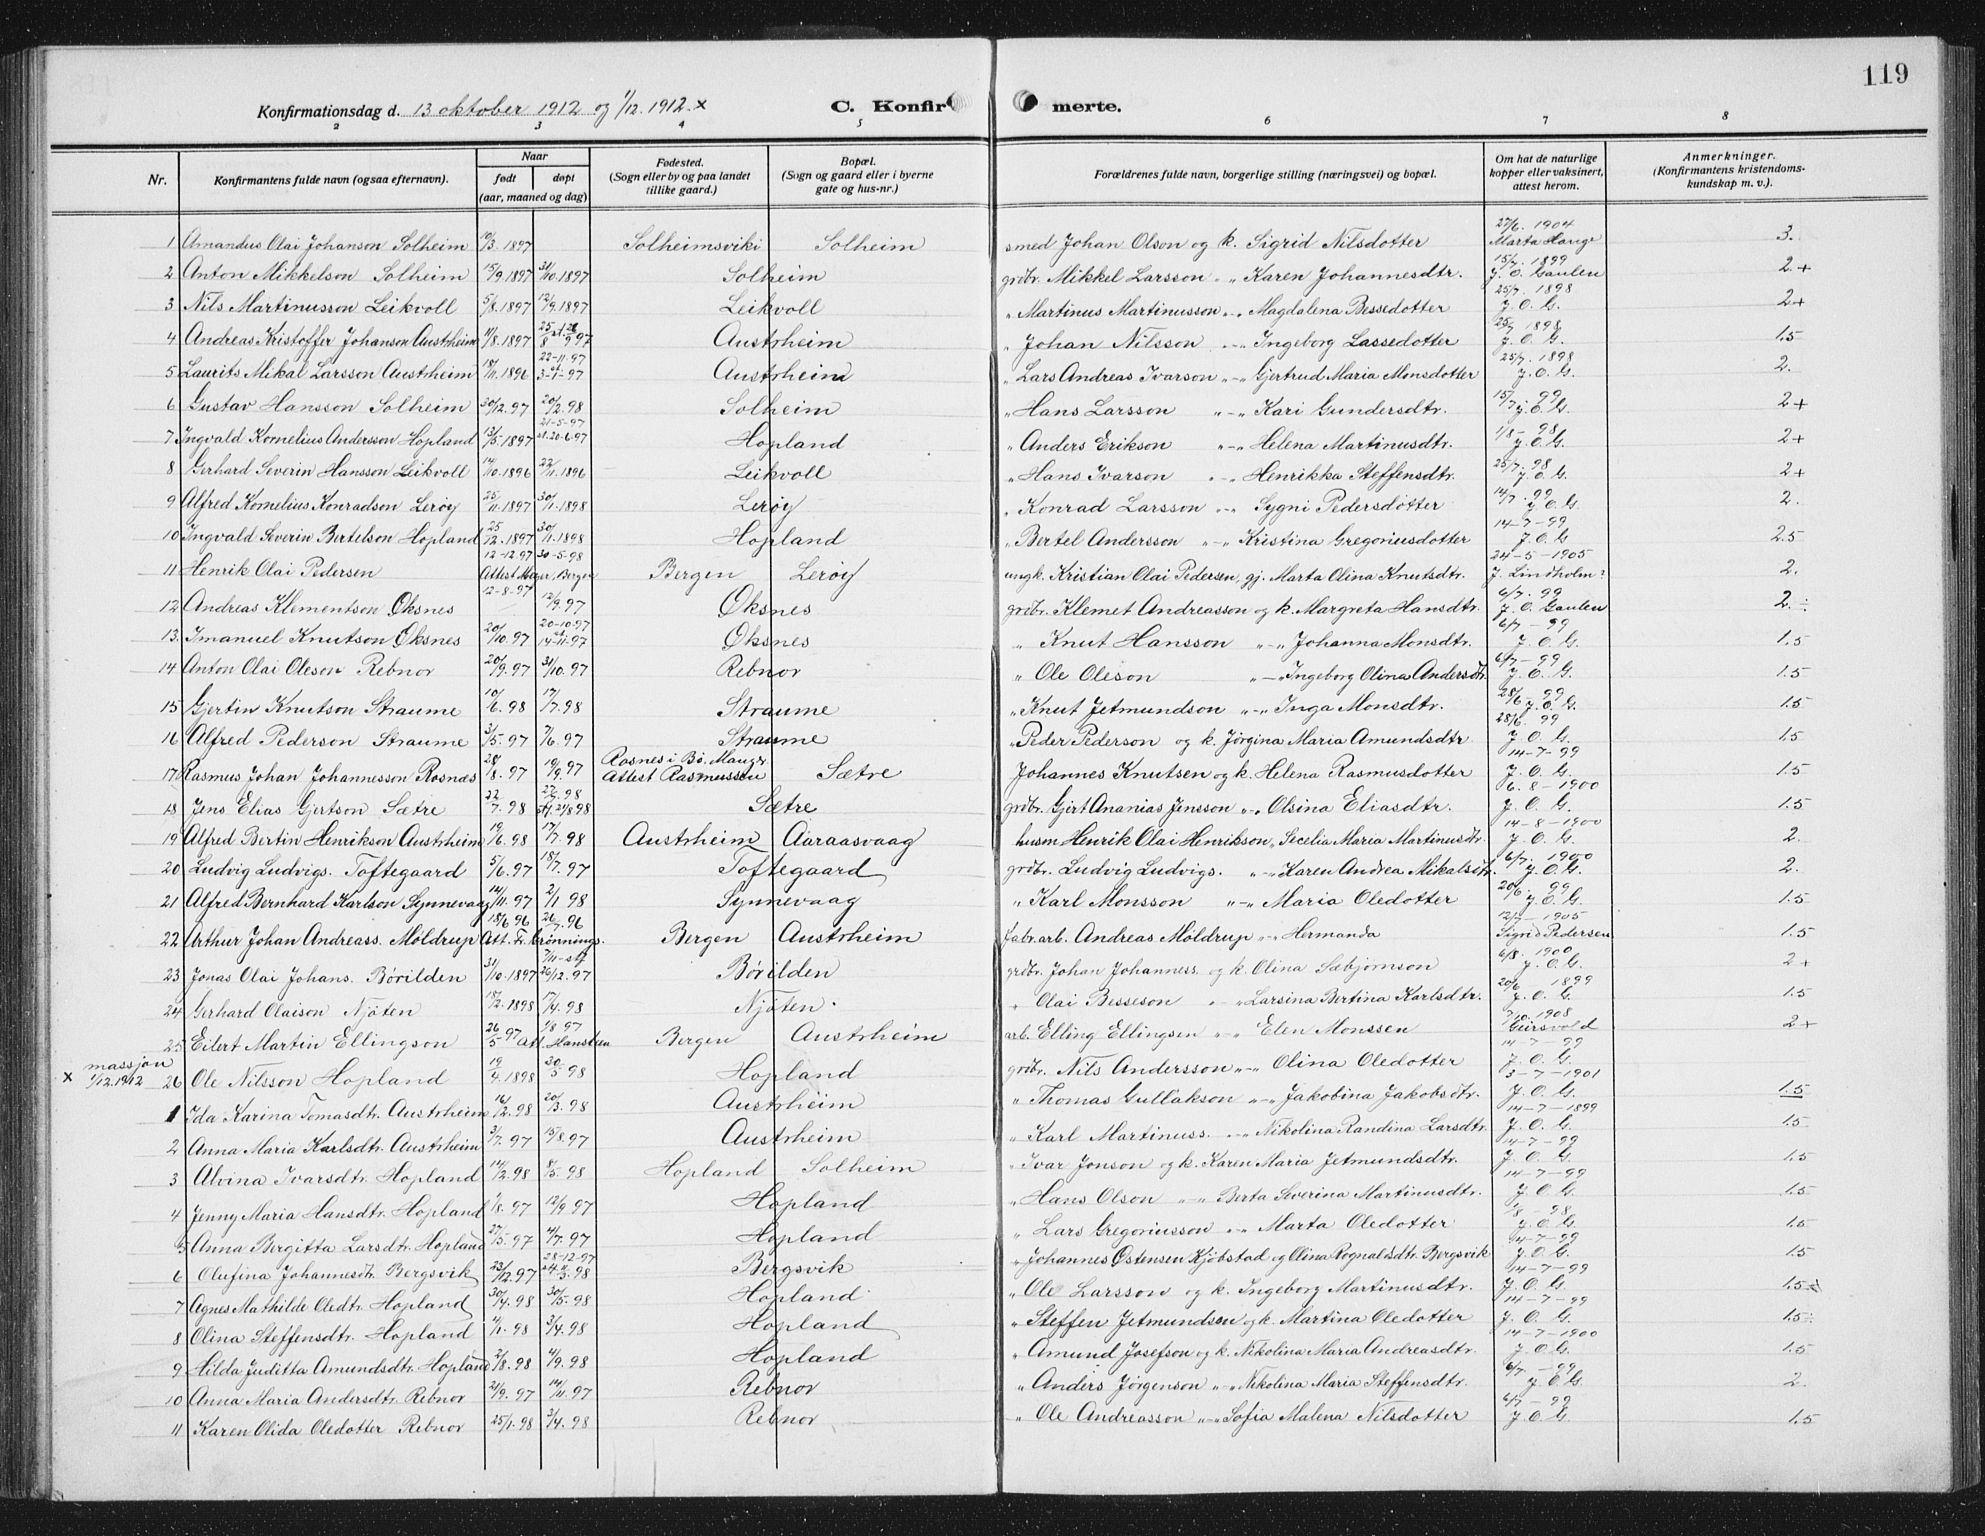 119
Konfirmationsdag d. 13 oktober 1912 og 1/12. 1912. x C. Konfirmerte.
2 3 4 5 6 7 8
Nr. Konfirmantens fulde navn (ogsaa efternavn). Naar født døpt (aar, maaned og dag) Fødested. (Sogn eller by og paa landet tillike gaard.) Bopæl. (Sogn og gaard eller i byerne gate og hus-nr.) Forældrenes fulde navn, borgerlige stilling (næringsvei) og bopæl. Om hat de naturlige kopper eller vaksinert, attest herom. Anmerkninger. (Konfirmantens kristendomskundskap m. v.).
1 Amandus Olai Johanson Solheim 10/3. 1897 Solheimsviki Solheim smed Johan Olson og k. Sigrid Nilsdotter 27/6. 1904 Marta Hauge 3.
2 Anton Mikkelson Solheim 15/9 1897 31/10. 1897 Solheim grdbr. Mikkel Larsson " " Karen Johannesdtr. 15/7. 1899 J. O. Gaulen 2+
3 Nils Martinusson Leikvoll 5/8. 1897 12/9. 1897 Leikvoll " Martinus Martinusson "-" Magdalena Bessedotter 25/7. 1898 J. O. G. 2+
4 Andreas Kristoffer Johanson Austrheim 11/8. 1897 Austrheim " Johan Nilsson "-" Ingeborg Lassedotter 25/7 1898 J. O. G. 1.5
5 Laurits Mikal Larsson Austrheim 18/11. 1896 22-11-97 3-1-97 Austrheim " Lars Andreas Ivarson "-" Gjertrud Maria Monsdotter 25/7. 1898 J. O. G. 2.
6 Gustav Hansson Solheim 30/12. 97 20/2. 98 Solheim " Hans Larsson "-" Kari Gundersdtr. 15/7. 99 J. O. G. 2+
7 Ingvald Kornelius Andersson Hopland 13/5. 1897 21-5-97 st. 20-6-97 Hopland " Anders Erikson "-" Helena Martinusdtr. 1/8-98 J. O. G. 2+
8 Gerhard Severin Hansson Leikvoll 14/10. 1896 22/11. 1896 Leikvoll " Hans Ivarson "-" Henrikka Steffensdtr. 25/7. 98 J. O. G. 2+
9 Alfred Kornelius Konradson Lerøy 25/11. 1897 30/1. 1898 Lerøy " Konrad Larsson "-" Sygni Pedersdotter 14/7. 99 J. O. G. 2.
10 Ingvald Severin Bertelson Hopland 25/12. 1897 30/1. 1898 Hopland " Bertel Andersson "-" Kristina Gregoriusdotter 14-7-99 J. O. G. 2.5
11 Henrik Olai Pedersen 12-12-97 30-5-98 Attest Mager, Bergen Bergen Lerøy ungk. Kristian Olai Pedersen, gj. Marta Olina Knutsdtr. 24-5-1905 J. Lindholm 2.
12 Andreas Klementson Øksnes 12-8-97 12/9. 97 Øksnes grdbr. Klemet Andreasson og k. Margreta Hansdtr. 6/7. 99 J. O. Gaulen 2÷
13. Imanuel Knutson Øksnes 20/10. 97 20-10-97 14-11-97 Øksnes " Knut Hansson "-" Johanna Monsdtr. 6/7-99 J. O. G. 1.5
14 Anton Olai Oleson Rebnor 20/9. 97 31/10. 97 Rebnor " Ole Oleson "-" Ingeborg Olina Andersdtr. 6/7-99 J. O. G. 1.5
15 Gjertin Knutson Straume 10/6. 98 17/7. 98 Straume " Knut Jetmundson "-" Inga Monsdtr. 28/6-99 J. O. G. 1.5
16 Alfred Pederson Straume 3/5. 97 7/6. 97 Straume " Peder Pederson og k. Jørgina Maria Amundsdtr 28/6. 99 J. O. G. 1.5
17 Rasmus Johan Johannesson Rosnæs 28/8. 97 19/9. 97 Rosnes i Bø. Mangr. Attest Rasmussen Sætre Johannes Knutsen og k. Helena Rasmusdotter 14-7-99 J. O. G. 1.5
18 Jens Elias Gjertson Sætre 22/7. 98 Sætre grdbr. Girt Ananias Jensson "-" Olsina Eliasdtr. 6-8-1900 J. O. G. 1.5
19 Alfred Bertin Henrikson Austrheim 19/6. 98 17/7. 98 Austrheim Aaraasvaag husm Henrik Olai Henrikson " Secelia Maria Martinusdtr. 14-8-1900 J. O. G. 2.
20 Ludvig Ludvigs. Toftegaard 5/6. 97 18/7. 97 Toftegaard grdbr. Ludvig Ludvigs. "-" Karen Andrea Mikalsdtr. 6/7. 1900 J. O. G. 2.
21 Alfred Bernhard Karlson Synnevaag 14/11. 97 2/1 98 Synnevaag " Karl Monsson "-" Maria Oledotter 20/6. 99 J. O. G. 1.5
22 Arthur Johan Andreass. Möldrup 18/6 96 26/7. 96 Att. Fr. Grønnings. Bergen Austrheim fabr. arb. Andreas Möldrup "-" Hermanda 12/7-1905 Sigrid Pedersen 1.5
23 Jonas Olai Johans. Børilden 31/10. 1897 26/12. 97 Børilden grdbr. Johan Johanness. og k. Olina Sæbjørnson 6/8. 1900 J. O. G. 2+
24 Gerhard Olaison Njøten 18/2. 1898 17/4. 98 Njøten. " Olai Besseson "-" Larsina Bertina Karlsdtr. 20/6 1899 J. O. G. 1.5
25 Eilert Martin Ellingson 26/5 97 1/8 97 Att. Hansteen Bergen Austrheim arb. Elling Ellingsen "-" Elen Monssen 1908 2+
x massjon 1/12. 1912 26 Ole Nilsson Hopland 19/4. 1898 20/5 98 Hopland grdbr. Nils Andersson "-" Olina Oledotter 14-7-99 J. O. G.
1 Ida Karina Tomasdtr. Austrheim 16/2. 98 20/3. 98 Austrheim " Thomas Gullakson "-" Jakobina Jakobsdtr. 3-7-1901 J. O. G. 1.5
2 Anna Maria Karlsdtr. Austrheim 3/7. 97 15/8. 97 Austrheim " Karl Martinuss. "-" Nikolina Randina Larsdtr. 14-7-1899 J. O. G. 1.5
3 Alvina Ivarsdtr. Hopland 14/2. 98 8/5. 98 Hopland Solheim " Ivar Jonson og k. Karen Maria Jetmundsdtr. 14-7-99 J. O. G. 1.5
4 Jenny Maria Hansdtr. Hopland 1/8. 97 12/9 97 Hopland " Hans Olson "-" Berta Severina Martinusdtr. 14-7-99 J. O. G. 1.5
5 Anna Bergitta Larsdtr. Hopland 27/5. 97 4/7. 97 Hopland " Lars Gregoriusson "-" Marta Oledotter 1/8-98 J. O. G. 1.5
6 Olufina Johannesdtr. Bergsvik 23/12. 97 28-12-97 Bergsvik " Johannes Østensen Kjöbstad og Olina Rognaldsdtr. Bergsvik 14-7-99 J. O. G. 1.5
7 Agnes Mathilde Oledtr. Hopland 30/4. 98 30/5. 98 Hopland " Ole Larsson og k. Ingeborg Martinusdtr. 14-7-99 J. O. G. 1.5
8 Olina Steffensdtr. Hopland 4/1. 98 3/4. 98 Hopland " Steffen Jetmundsen og k. Martina Oledotter 14-7-99 J. O. G. 1.5÷
9 Hilda Juditta Amundsdtr. Hopland 2/8. 98 4/9. 98 Hopland " Amund Josefson og k. Nikolina Maria Andreasdtr. 14-7-1900 J. O. G. 1.5
10 Anna Maria Andersdtr. Rebnor 21/9. 97 14/11. 97 Rebnor " Anders Jørgenson "-" Nikolina Maria Steffensdtr. 6/7-99 J. O. G. 2.
11 Karen Olida Oledotter Rebnor 25/1. 98 3/4. 98 Rebnor " Ole Andreasson "-" Sofia Malena Nilsdotter 6/7-99 J. O. G. 1.5